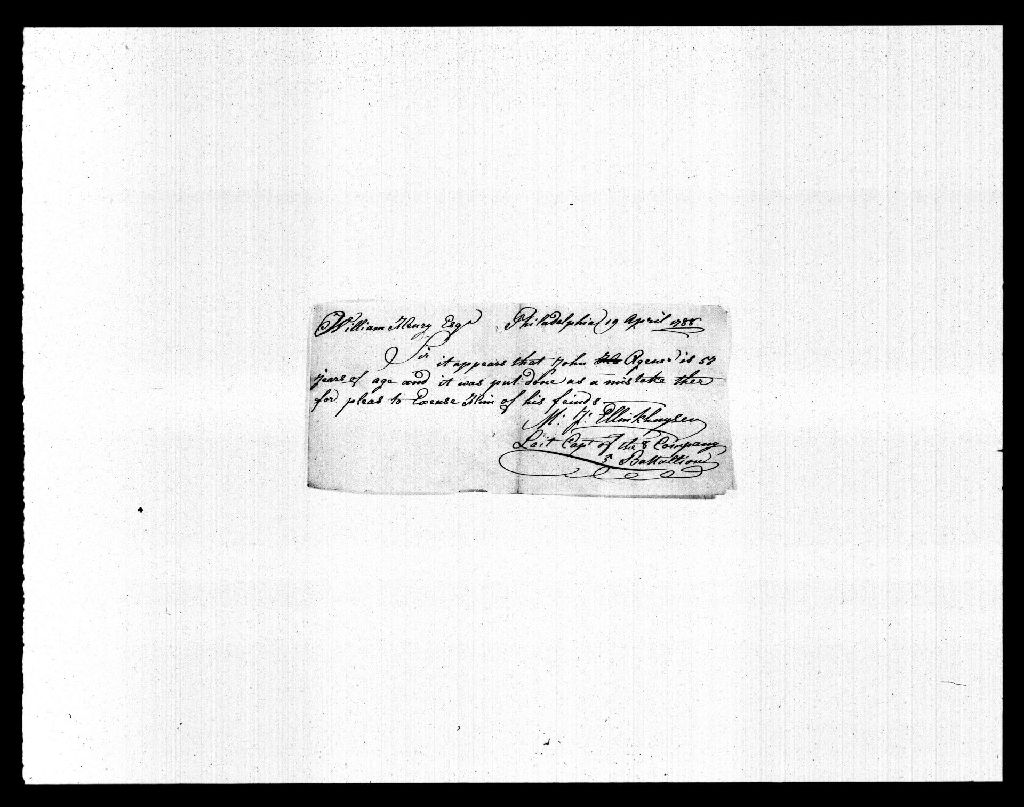 William Henry Esqr Philadelphia 19 April 1788
Sir it appears that John is 53
years of age and it was put done as a mistake ther
for pleas to Excuse Him of his finds
M: J: Ellinkhuysen
Lait Capt of the 8 Company
5 Battallion